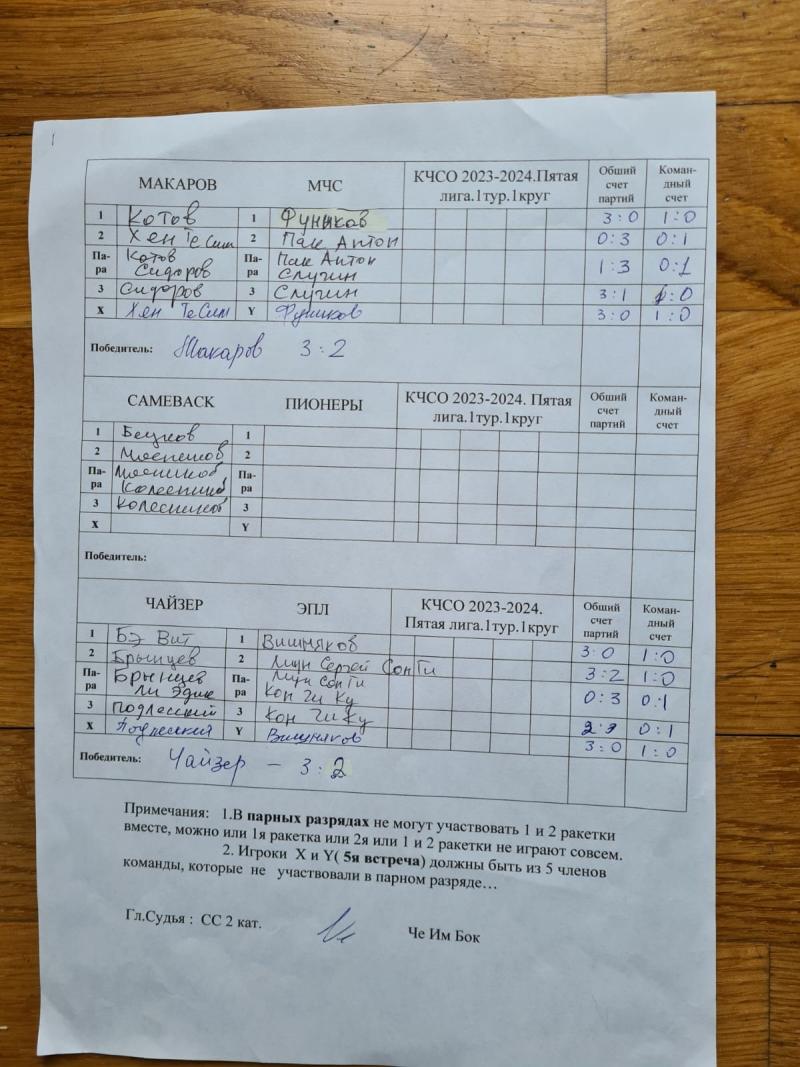 МАКАРОВ МЧС КЧСО 2023-2024.Пятая лига.1тур.1круг Общий счет партий Коман-дный счет
1 Котов 1 Фунжков 3:0 1:0
2 Хен Те Сим 2 Пак Антон 0:3 0:1
Па-ра Котов Па-ра Пак Антон
Сидоров Слугин 1:3 0:1
3 Сидоров 3 Слугин 3:1 1:0
X Хен Те Сим Y Фунжков 3:0 1:0
Победитель: Макаров 3:2
САМЕВАСК ПИОНЕРЫ КЧСО 2023-2024. Пятая лига.1тур.1круг Общий счет партий Коман-дный счет
1 1
2 2
Па-ра Па-ра
3 Колесников 3
X Y
Победитель:
ЧАЙЗЕР ЭПЛ КЧСО 2023-2024. Пятая лига.1тур.1круг Общий счет партий Коман-дный счет
1 Бэ Вит 1 Вишняков 3:0 1:0
2 Брынцев 2 Сергей Сон Ги 3:2 1:0
Па-ра Брынцев Па-ра Сон Ги
Ли Эдик Кон Чи Ку 0:3 0:1
3 Подлесский 3 Кон Чи Ку 2:3 0:1
X Подлесский Y Вишняков 3:0 1:0
Победитель: Чайзер – 3:2
Примечания: 1.В парных разрядах не могут участвовать 1 и 2 ракетки
вместе, можно или 1я ракетка или 2я или 1 и 2 ракетки не играют совсем.
2. Игроки X и Y( 5я встреча) должны быть из 5 членов
команды, которые не участвовали в парном разряде…
Гл.Судья : СС 2 кат. Че Им Бок